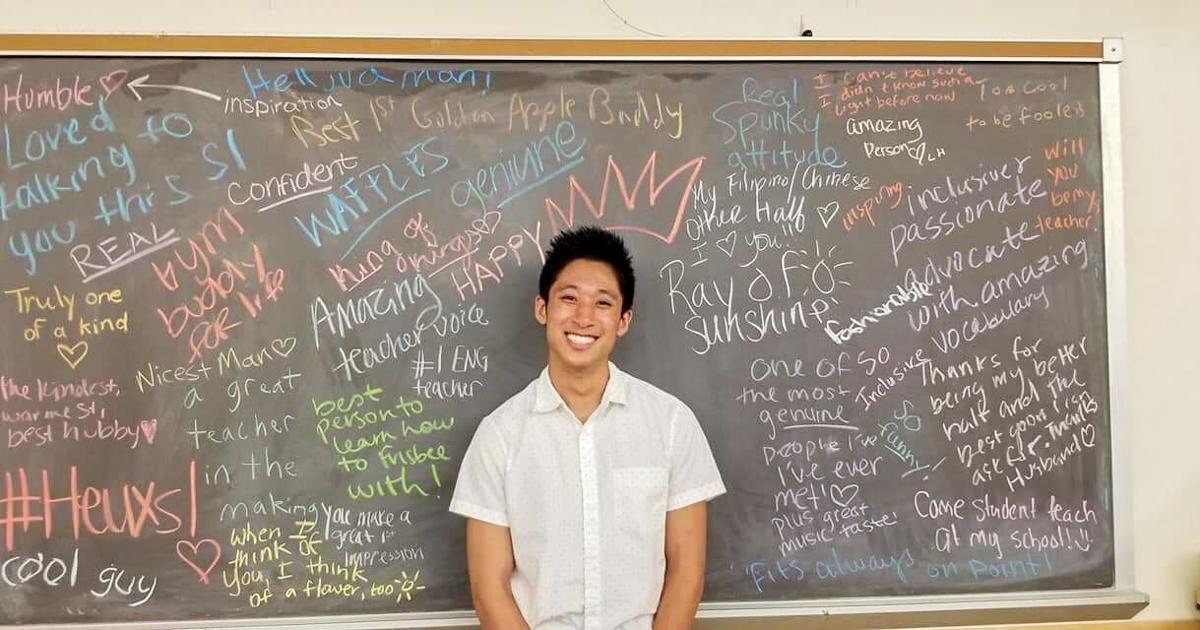 Humble
inspiration
Hella man!
Best 1st Golden Apple Buddy
Loved to
talking to
you this SI
Confident
WAFFLES
geniune
REAL
GYM
buddy
for life
king of
HAPPY
Truly one
of a kind
Amazing
teacher voice
#1 ENG
teacher
Nicest Man
a great
teacher
in the
making
the kindest,
warmest,
best hubby
best
person to
learn how
to frisbee
with!
#Heuxs
cool guy
when I
think of
you, I think
of a flower, too
you make a
great 1st
impression
Real
Spunky
attitude
I can't believe
I didn't know such a
light before now
Too cool
to be fooled
amazing
Person LH
My Filipino/Chinese
Other Half
I you!!
inspiring
inclusive
passionate
advocate
with amazing
vocabulary
will
you
be my
teacher
Ray of
sunshine
fashionable
one of so
the most
genuine
people I've
I've ever
met!
plus great
music taste!
Inclusive
so
funny!
Thanks for
being my better
half and the
best goon risin
ask for. Thanks
Husband
Come student teach
at my school!!
Fits always on point!